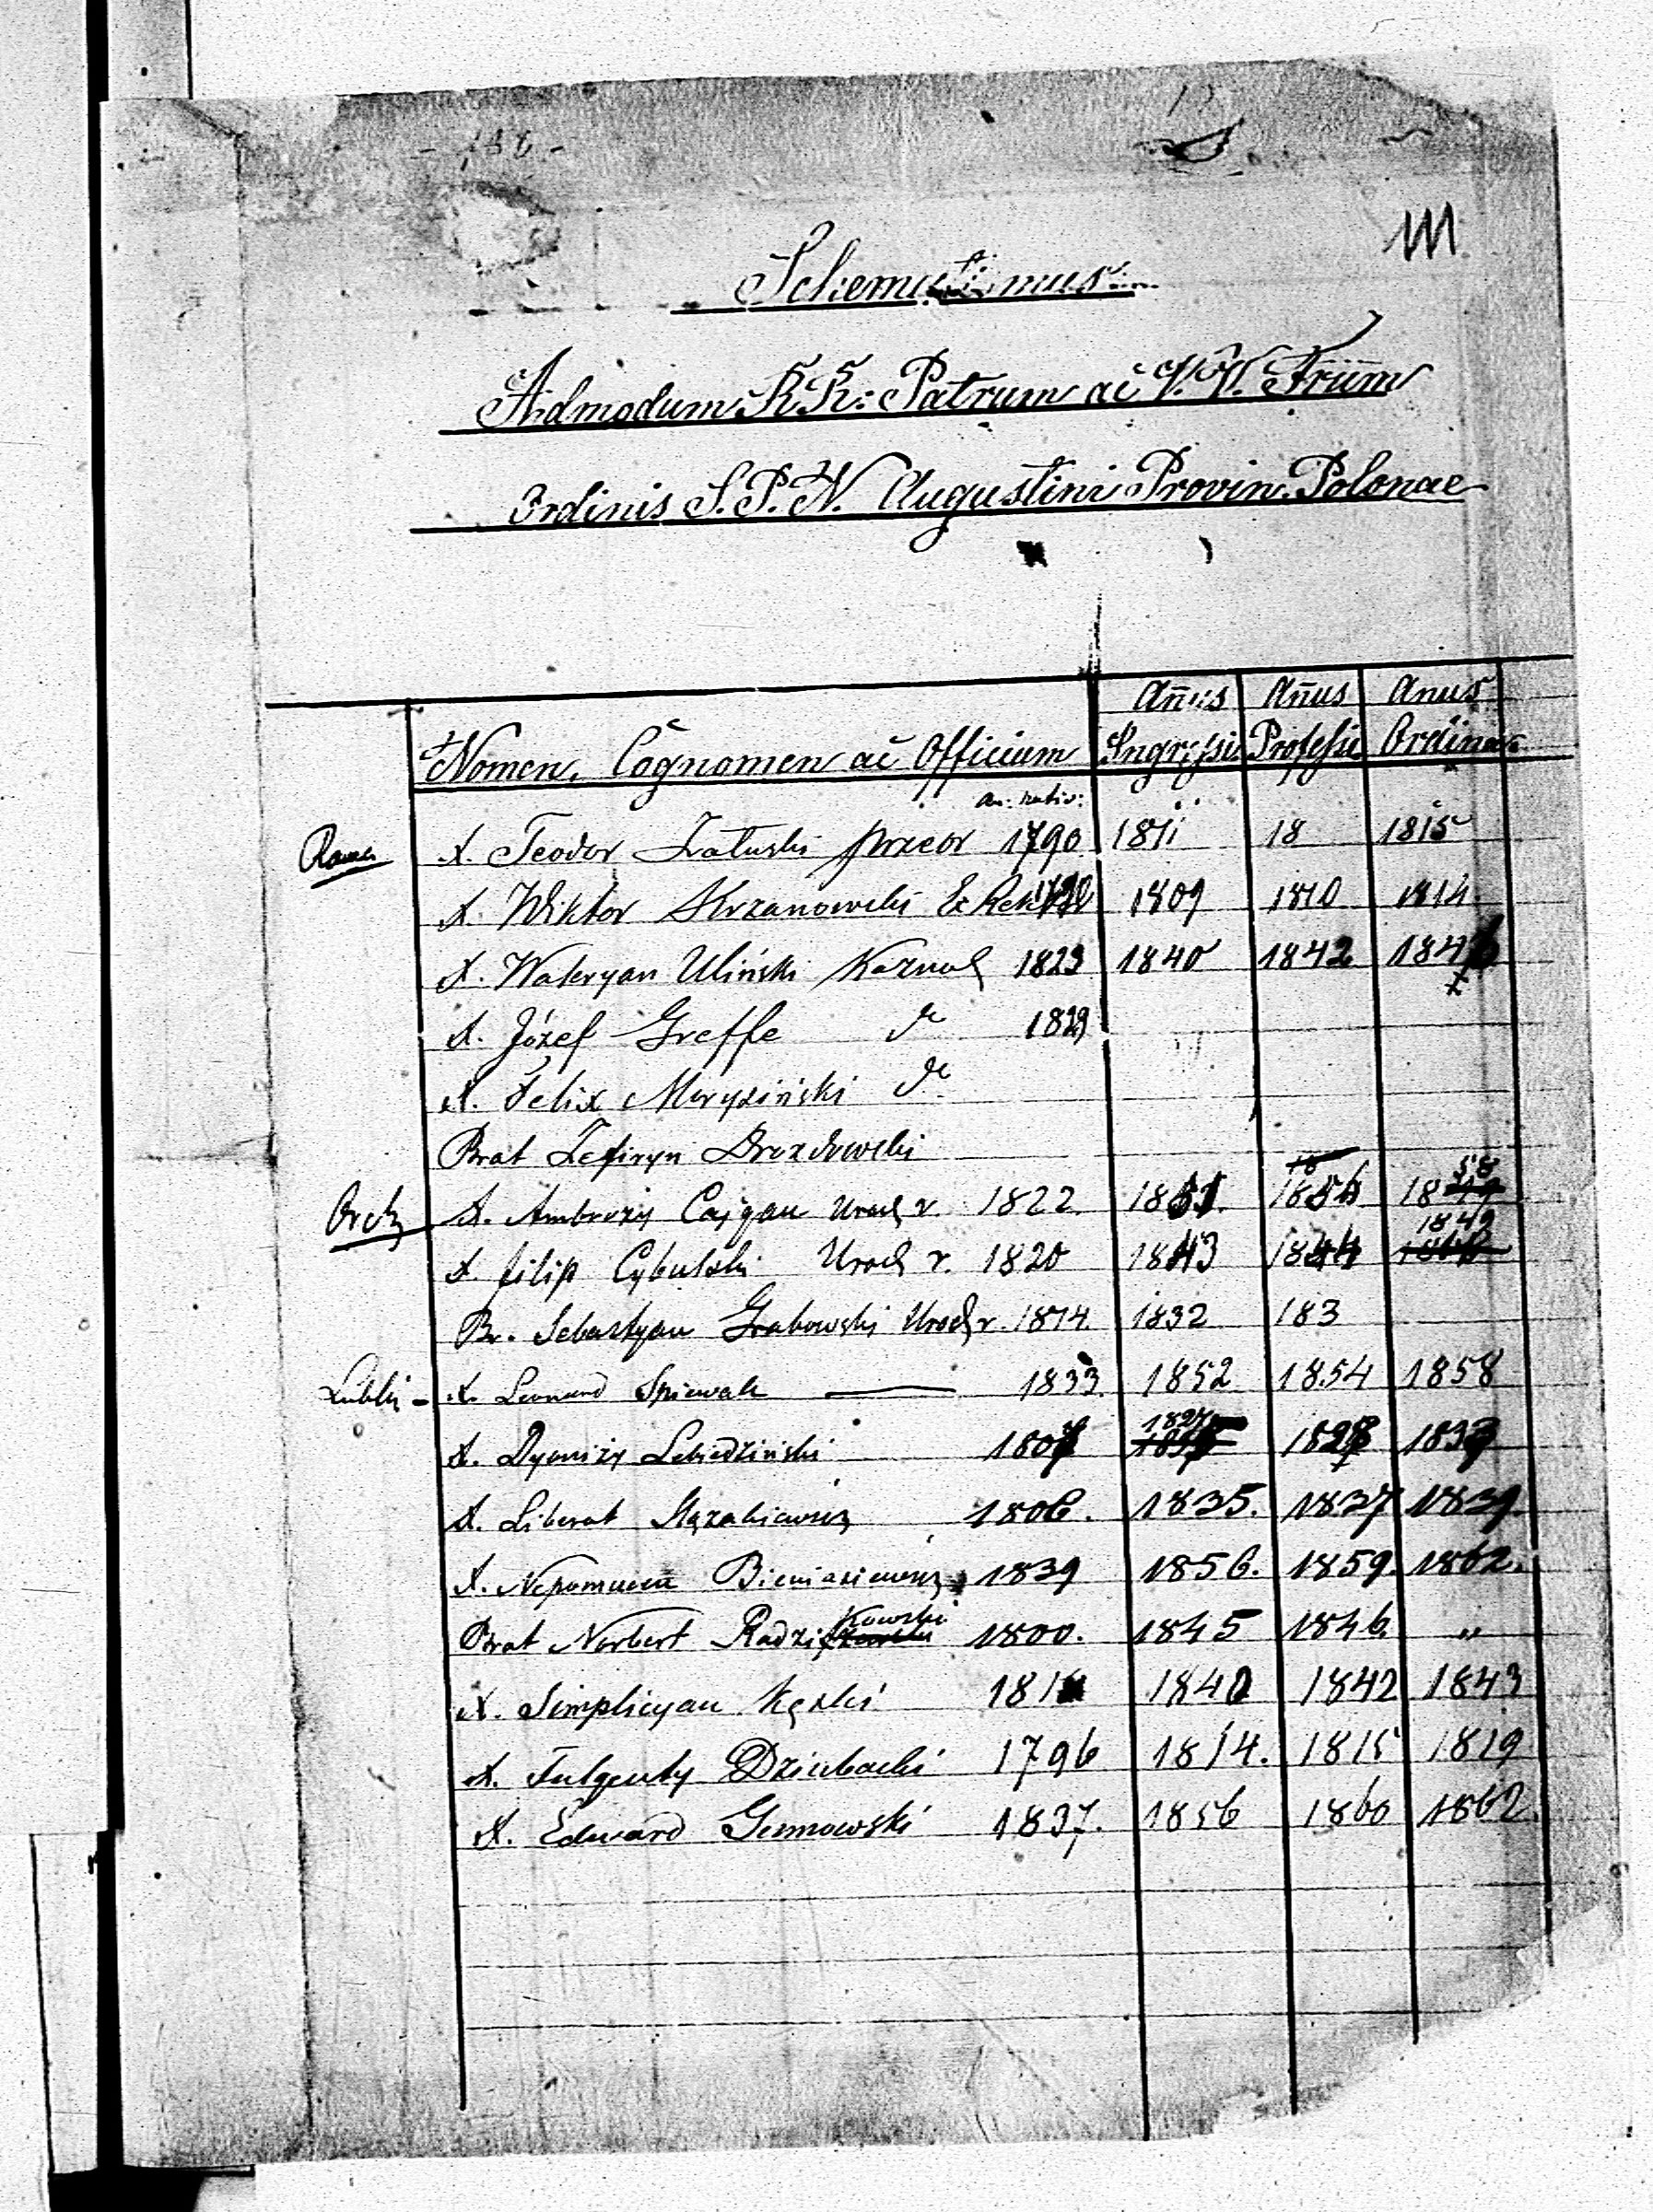 - 138 -
Schematismus
Admodum RR: Patrum ac V.V. Frum
Ordinis S.P.N. Augustini Provin. Polonae
Añus Añus Anus
Nomen, Cognomen ac Officium Ingressi Professi Ordina
an: nativ:
X. Teodor Załuski przeor 1790 1811 18 1815
X. Wiktor Skrzanowski Ex 1809 1810 1814
X. Waleryan Uliński Kaznod 1823 1840 1842 184
X. Józef Greffe dº 1829
X. Felix Maryziński dº
Brat Zefiryn Drozdowski
X. Ambroży Cajgan Urod r. 1822. 1854 18
58
X. Filip Cybulski Urod r. 1820 1843 1844
1849
Br. Sebastyan Grabowski Urod r. 1814 1832 183
Lubli - X. Leonard Spiewak 1833. 1852 1854 1858
X. Dyonizy Lebiedziński 1827
X. Liberat 1806. 1835. 1837 1839.
X. Nepomucen Bieniasiewicz 1839 1856. 1859. 1862.
Brat Norbert Radzikowski 1800. 1845 1846. "
X. Simplicyan Kęski 1840 1842 1843
X. Fulgenty Dziubacki 1796 1814. 1815 1819
X. Edward 1837. 1856 1860 1862.